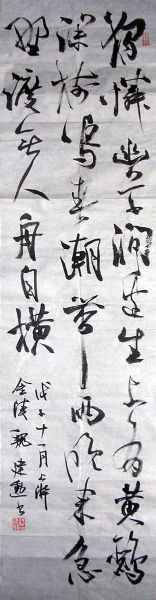 獨憐幽草澗邊生上有黃鸝
深樹鳴春潮帶雨晚來急
野渡無人舟自橫
戊子十一月上澣
金陵魏建勳書